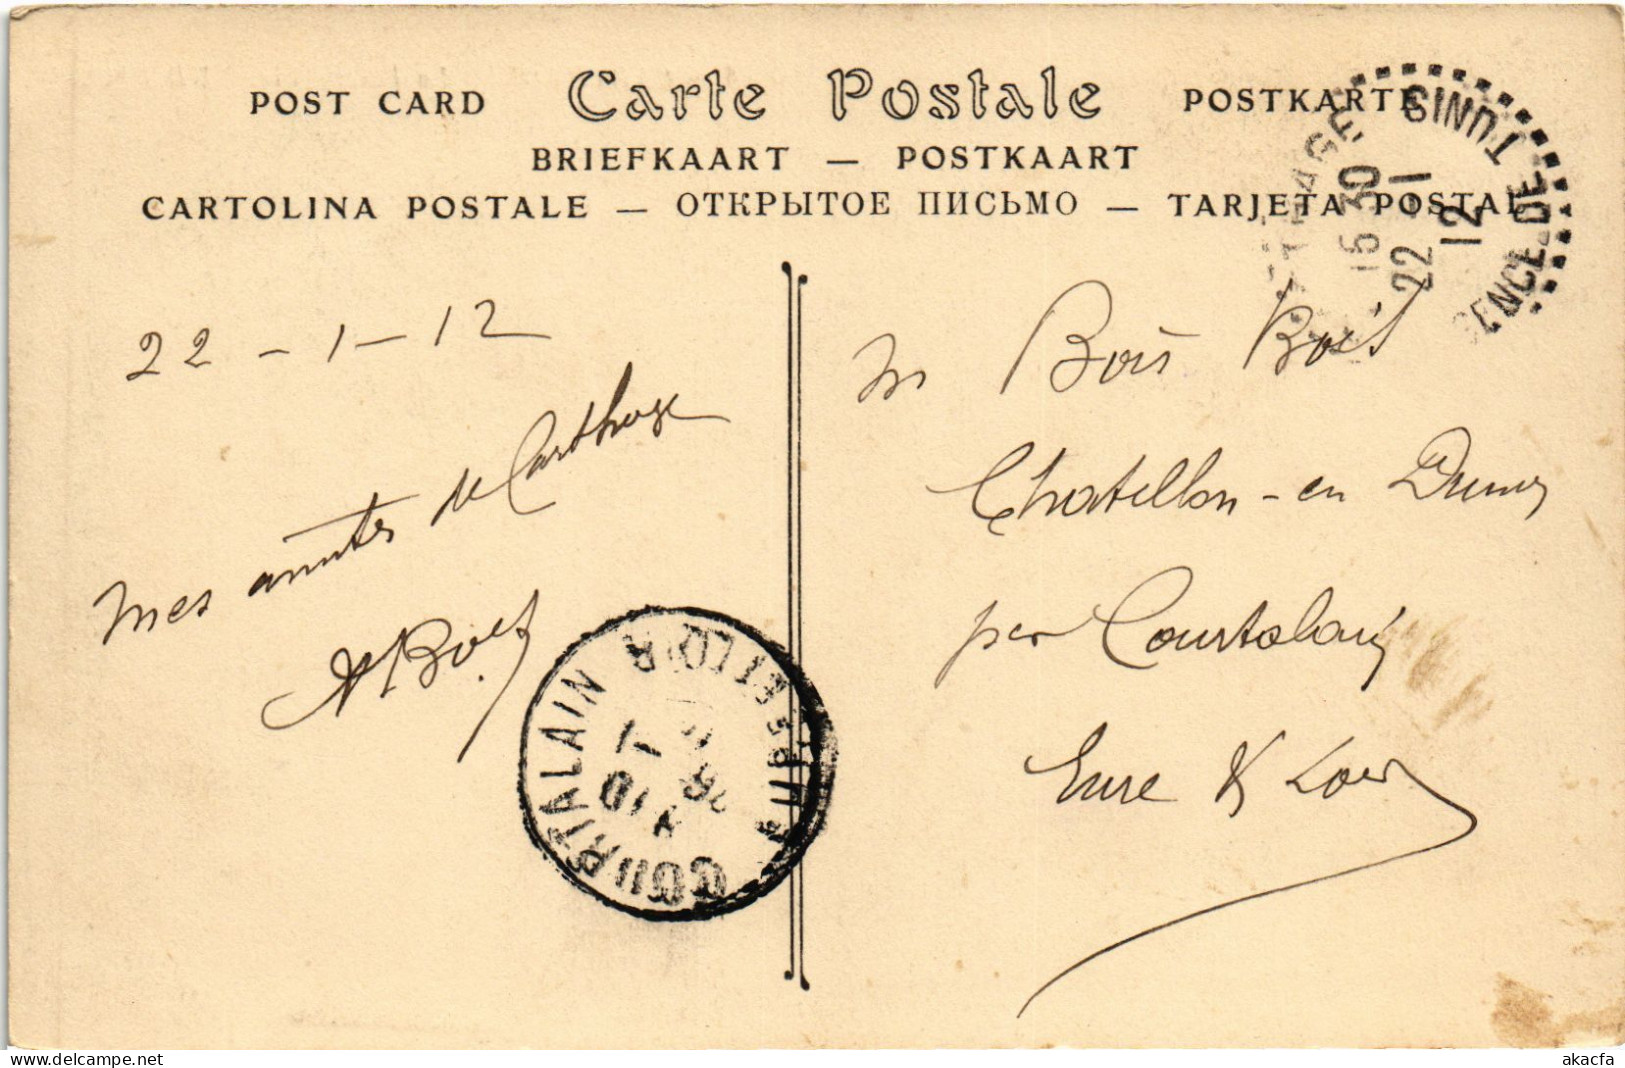 POST CARD Carte Postale POSTKARTE
BRIEFKAART — POSTKAART
CARTOLINA POSTALE — ОТКРЫТОЕ ПИСЬМО — TARJETA POSTAL
TUNIS
16 30
22 - 1
12
22 - 1 - 12
Mes amitiés de Carthage
Bois
Chatillon-en Dunois
par Courtalain
Eure & Loir
COURTALAIN
EURE-ET-LOIR
www.delcampe.net
akacfa